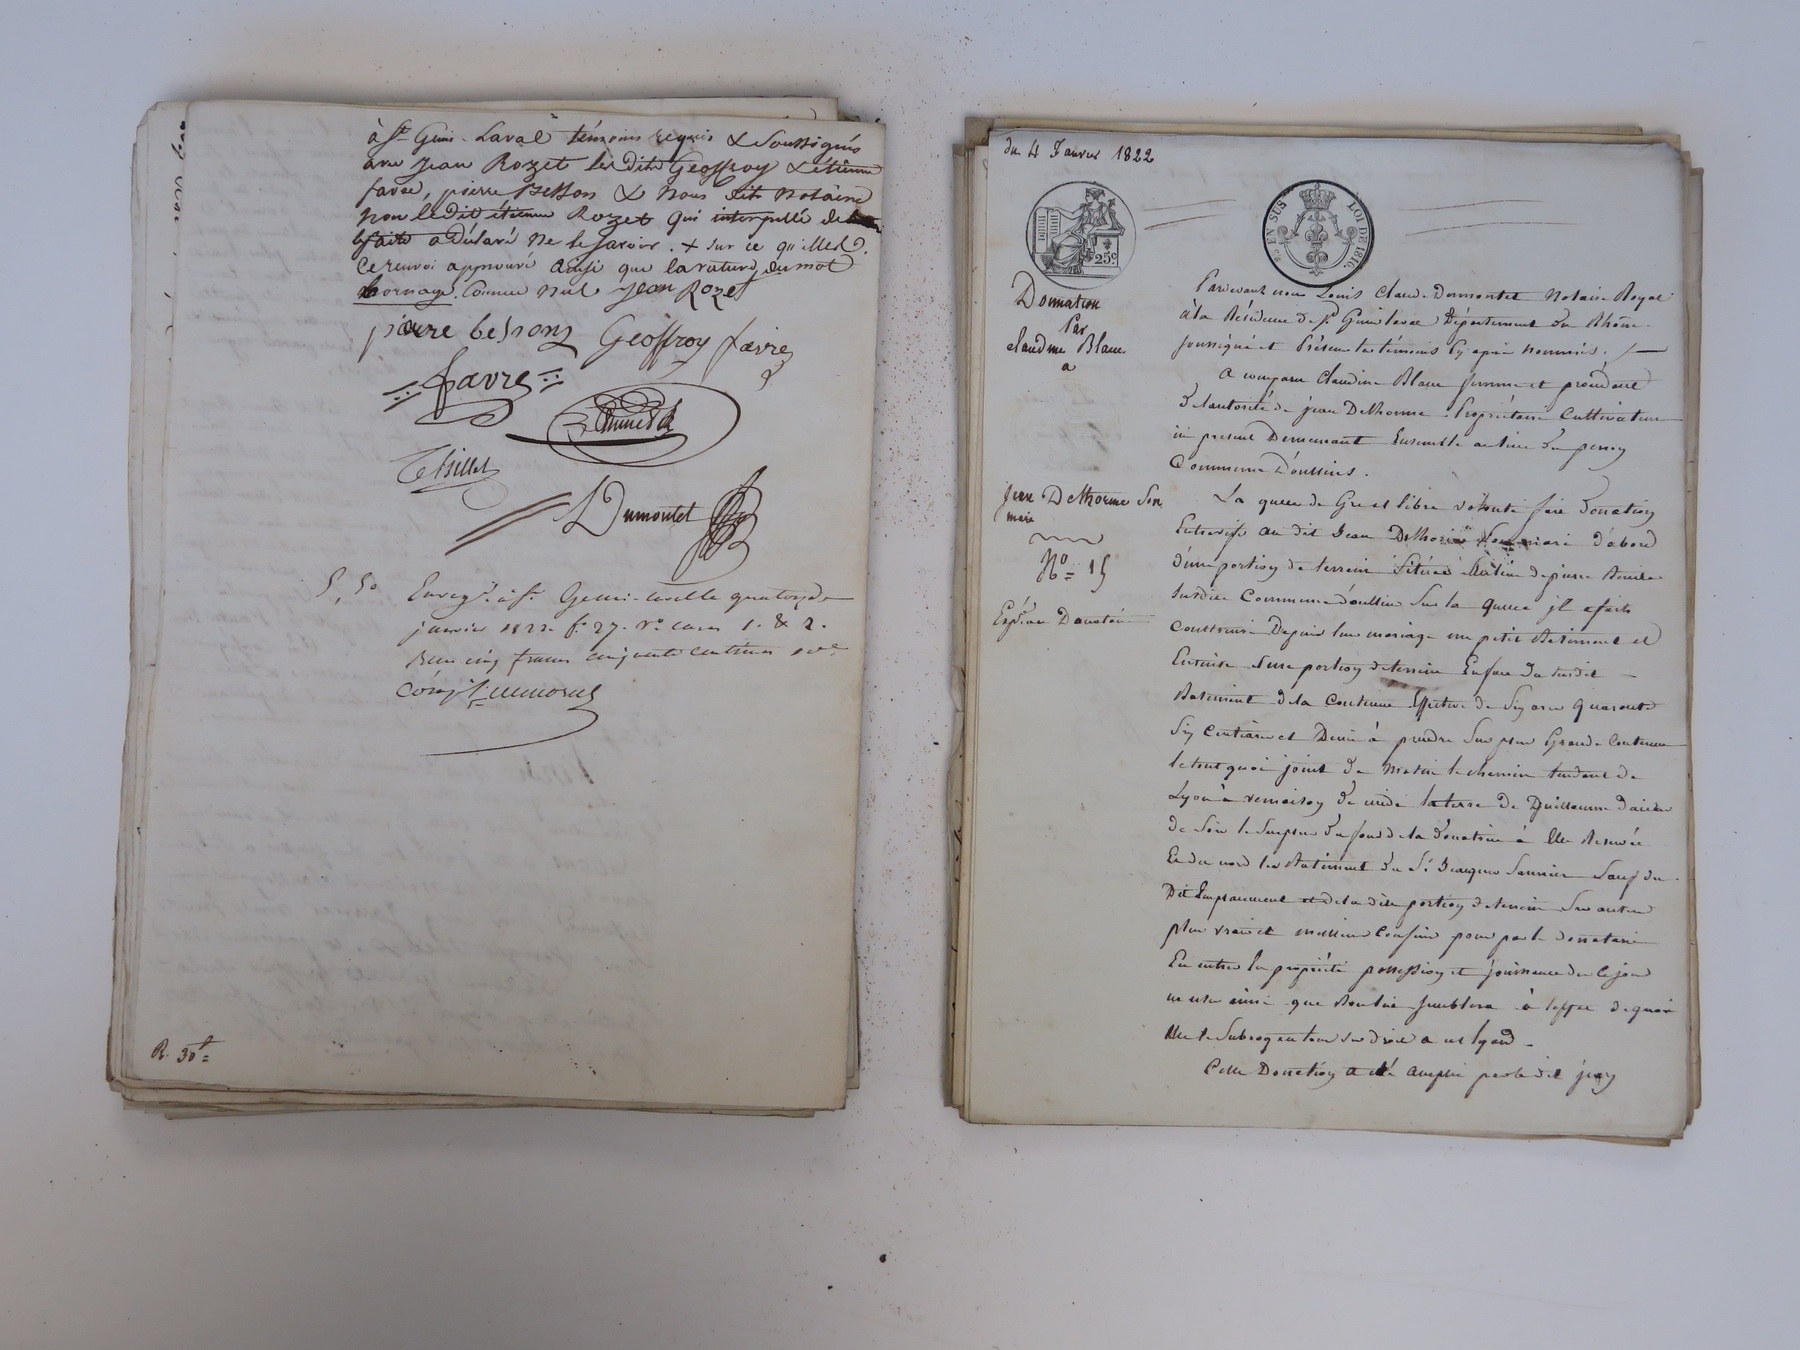 à St Genis-Laval témoins requis & Soussignés
avec Jean Rozet les dits Geoffroy & etienne
favre, pierre Besson & nous dit notaire
non le dit étienne Rozet qui interpellé de
le faire a déclaré ne le savoir. + sur ce qu'illed.
Ce renvoi approuvé ainsi que la rature du mot
bornage. Comme nul Jean Rozet
pierre besson Geoffroy favre
favre
Thillet
Dumontet
5, 50 Enregt. à St. Genis-Laval le quatorze
janvier 1822 fo. 27. Vo. cases 1. & 2.
Reçu cinq francs cinquante centimes
R. 30f=
du 4 Janvier 1822
25c.
EN SUS LOI DE 1816.
Donation
Par
claudine Blanc
a
Jean Delhorme Son
mari
No= 15
Expon au Donataire
Pardevant nous Louis Claude Dumontet Notaire Royal
à la Résidence de St Genis laval Département du Rhône
soussigné et Présens les témoins cy après nommés.
A comparu Claudine Blanc femme et procédant
de l'autorité de jean Delhorme Propriétaire Cultivateur
ici present Demeurant Ensemble au lieu du perron
Commune D'oullins.
La quelle de Gré et libre volonté fait Donation
Entrevifs au dit Jean Delhorme Son mari d'abord
d'une portion de terrein Située au lieu de pierre Bénite
susdite Commune d'oullins Sur la quelle il a fait
construire Depuis leur mariage un petit Batiment et
Ensuite d'une portion de terrein En face du susdit
Batiment de la Contenue Effective de Six ares quarante
Six Centiares et Demi à prendre Sur plus Grande Contenue
le tout quoi joint de Matin le chemin tendant de
Lyon à vernaison de midi la terre de Guillaume
de Soir le Surplus du fond de la Donatrice à Elle Reservée
Et du nord les Batiment du Sr Jacques Saunier Sauf du
Dit Emplacement et de la dite portion de terrein Ses autres
plus vrais et meilleurs Confins pour par le donataire
En entrer En propriété possession et jouissance des ce jour
ainsi que Bon lui Semblera à l'effet de quoi
Elle le Subroge en tous ses droits a cet Egard.
Cette Donation a été acceptée par le dit jean